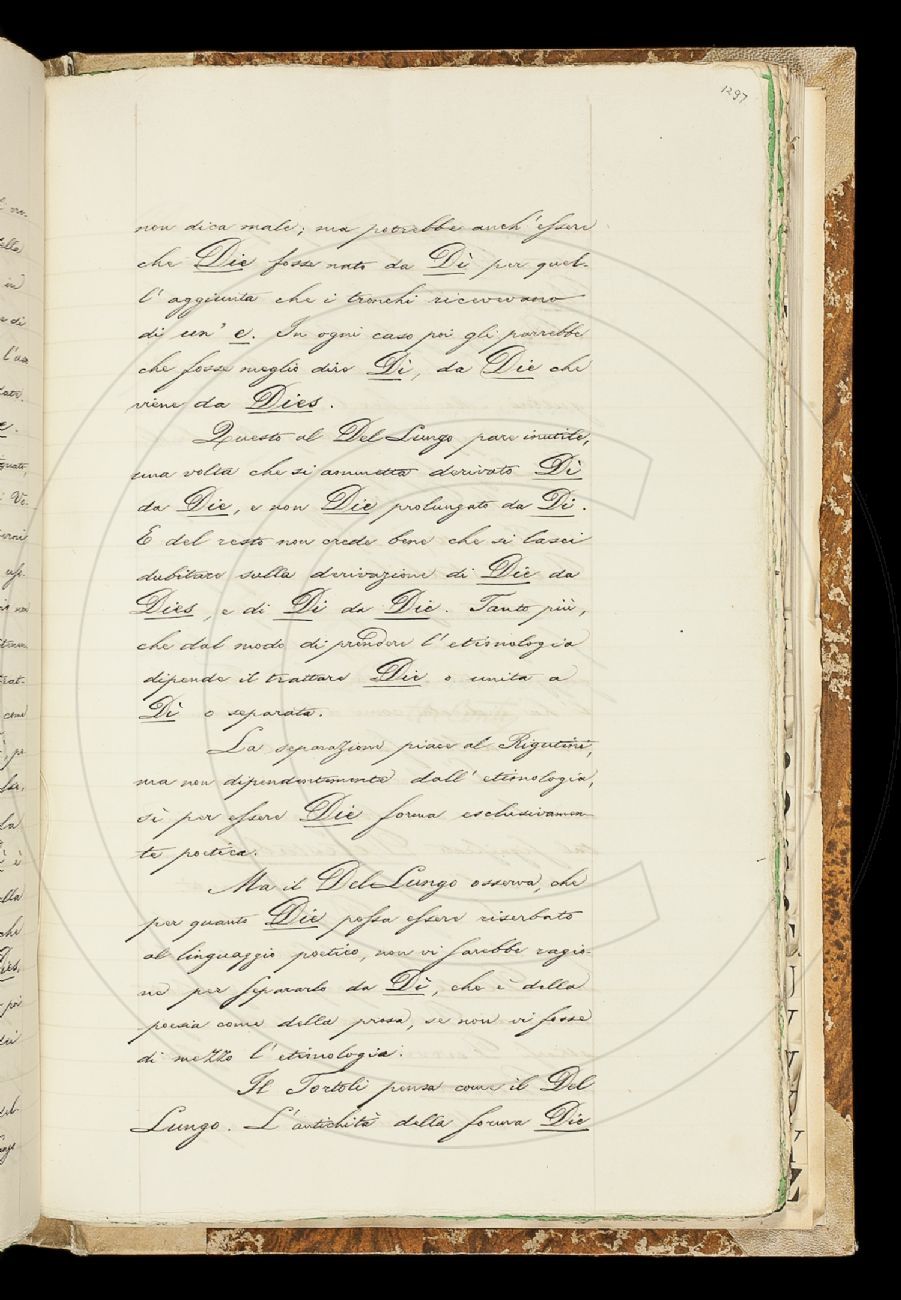 1297
non dica male; ma potrebbe anch'essere
che Die fosse nato da Dì per quel-
l'aggiunta che i tronchi ricevevano
di un' e. In ogni caso poi gli parrebbe
che fosse meglio dire Dì, da Die che
viene da Dies.
Questo al Del Lungo pare inutile,
una volta che si ammetta derivato Dì
da Die, e non Die prolungato da Dì.
E del resto non crede bene che si lasci
dubitare sulla derivazione di Die da
Dies, e di Dì da Die. Tanto più,
che dal modo di prendere l'etimologia
dipende il trattare Die o unita a
Dì o separata.
La separazione piace al Rigutini,
ma non dipendentemente dall'etimologia,
sì per essere Die forma esclusivamen-
te poetica.
Ma il Del Lungo osserva, che
per quanto Die possa essere riserbato
al linguaggio poetico, non vi sarebbe ragio-
ne per separarlo da Dì, che è della
poesia come della prosa, se non vi fosse
di mezzo l'etimologia.
Il Tortoli pensa come il Del
Lungo. L'antichità della forma Die